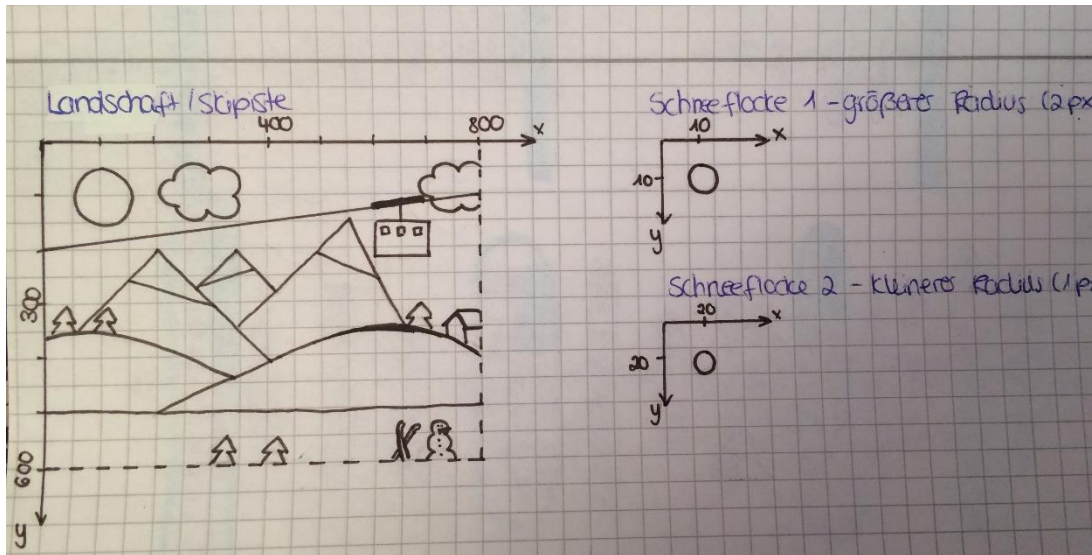 Landschaft / Skipiste
400
800
x
300
600
y
Schneeflocke 1 - größeres Radius (2px
10
x
10
y
Schneeflocke 2 - kleineres Radius (1p
20
x
20
y